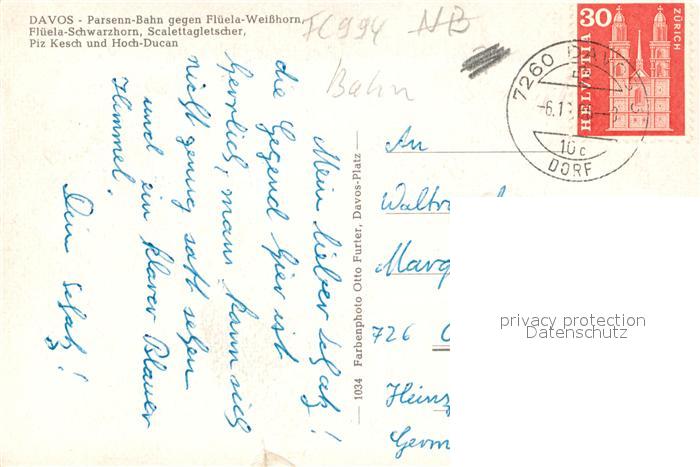 DAVOS - Parsenn-Bahn gegen Flüela-Weißhorn,
Flüela-Schwarzhorn, Scalettagletscher,
Piz Kesch und Hoch-Ducan
FC994 NB
Bahn
30
HELVETIA
ZÜRICH
7260 DAVOS
-6.1
10c
DORF
Mein lieber Schatz!
die Gegend hier ist
herrlich, mann kann sich
nicht genug satt sehen
und ein klarer Blauer
Himmel.
Dein Schatz!
1034 Farbenphoto Otto Furter, Davos-Platz
An
Waltr
Marg
726 C
Heinz
Germ
privacy protection
Datenschutz